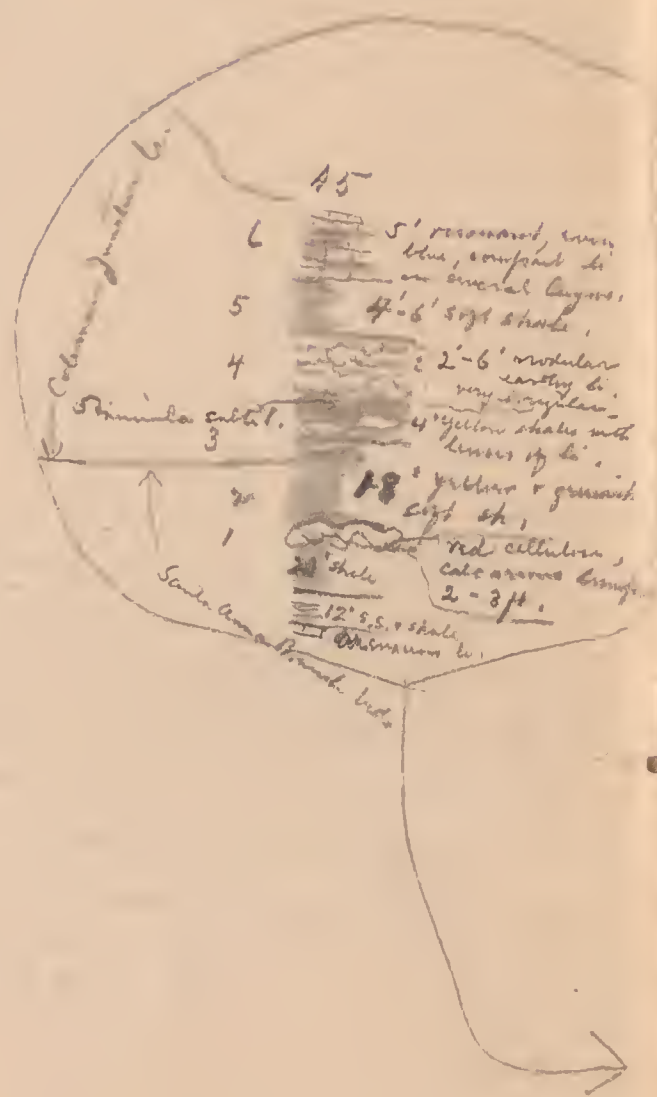 Coleman Junction li.
15
6
5' resonant, even
blue, compact li
in several layers.
5
4'-6' soft shale.
4
2'-6' nodular
earthy li
very irregular
subtil.
3
4' yellow shales with
lenses of li.
2
18' yellow & greenish
soft sh.
1
red cellulose,
calcareous
2-3 ft.
20' shale
12' s.s. & shale
li.
Santa Anna Branch beds.